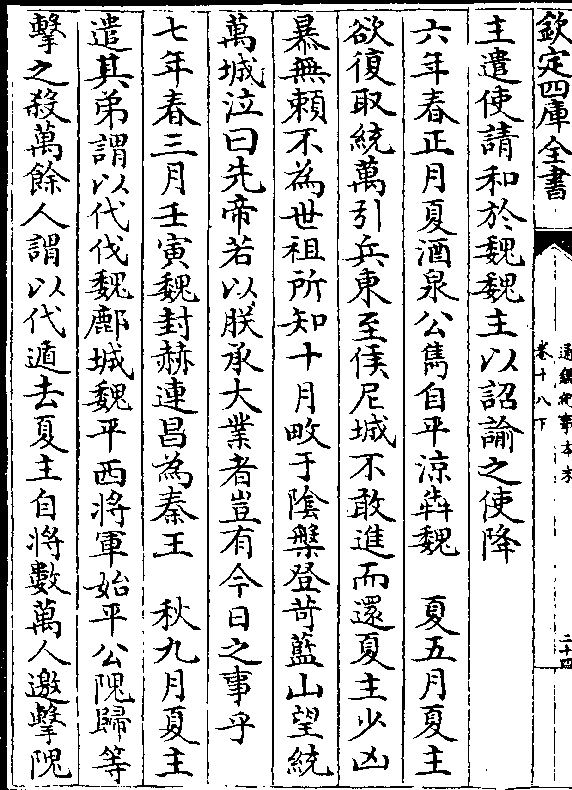 欽定四庫全書
通鑑紀事本末
卷十八下
二十四
主遣使請和於魏魏主以詔諭之使降
六年春正月夏酒泉公雋自平涼犇魏　夏五月夏主
欲復取統萬引兵東至侯尼城不敢進而還夏主少凶
暴無賴不為世祖所知十月畋于陰槃登苛藍山望統
萬城泣曰先帝若以朕承大業者豈有今日之事乎
七年春三月壬寅魏封赫連昌為秦王　秋九月夏主
遣其弟謂以代伐魏鄜城魏平西將軍始平公隗歸等
擊之殺萬餘人謂以代遁去夏主自將數萬人邀擊隗